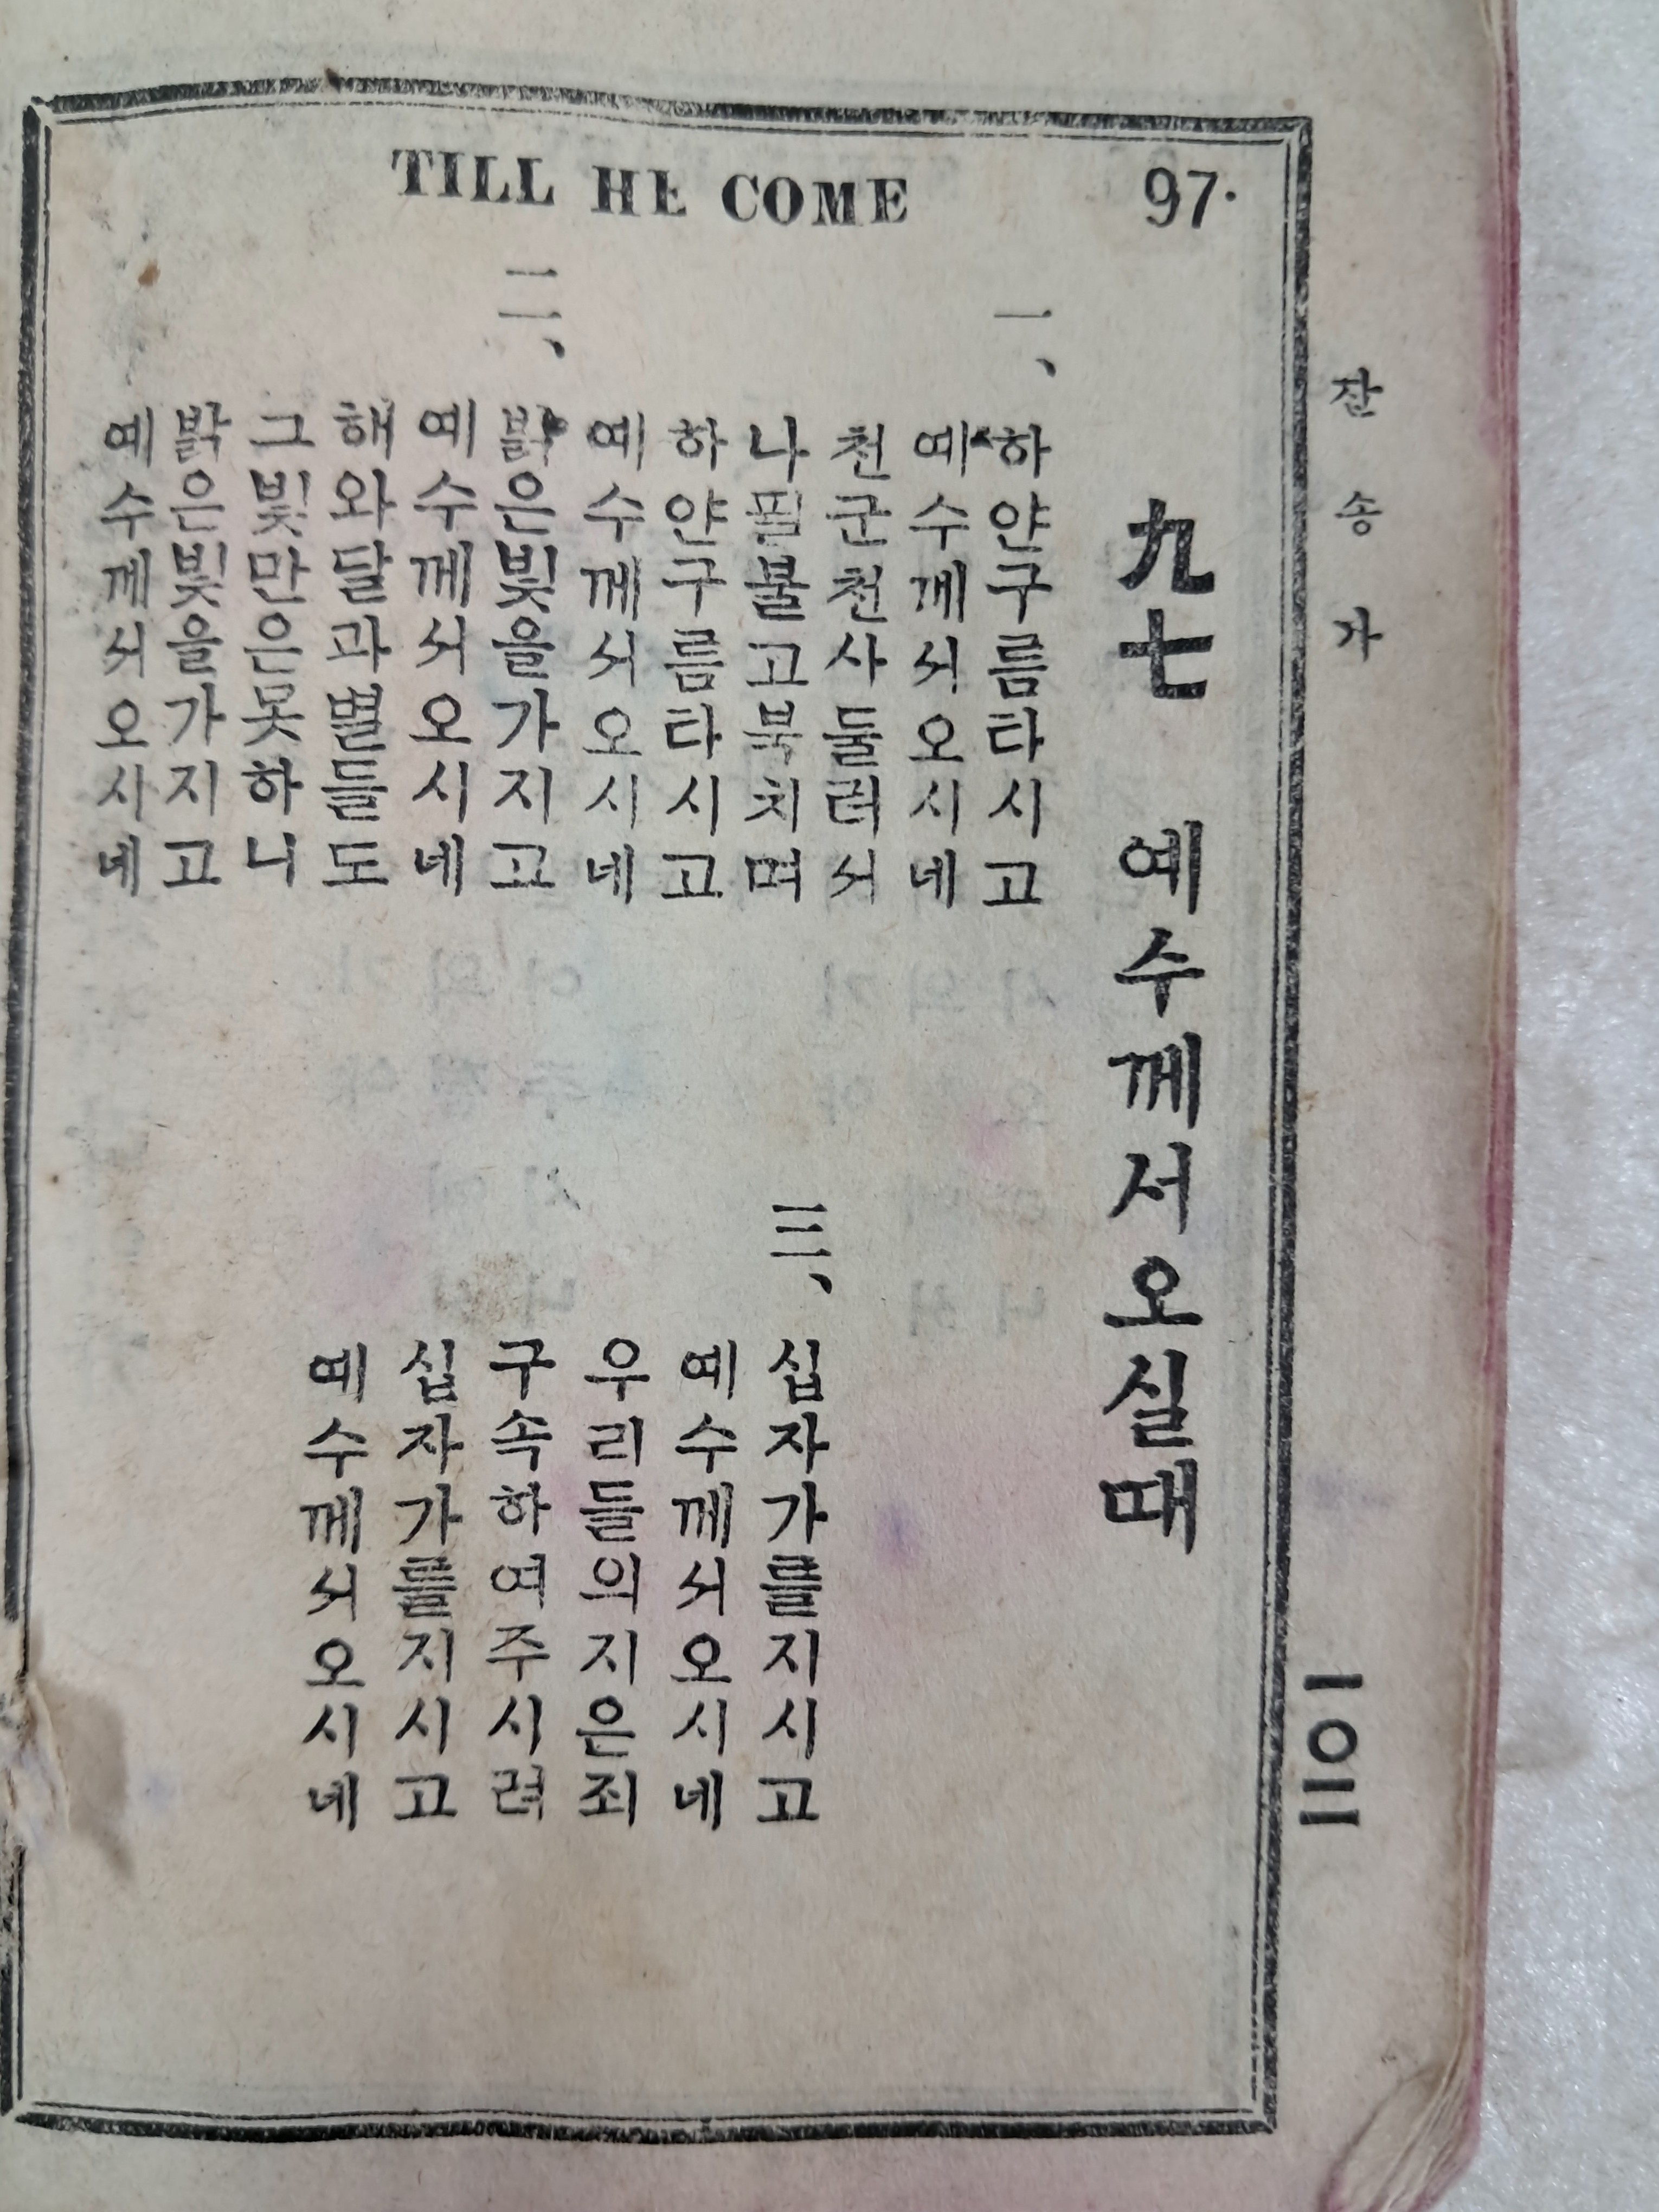 찬송가
一〇二
97.
TILL HE COME
九七 예수께서오실때
一、
하얀구름타시고
예수께서오시네
천군천사둘러서
나필불고북치며
하얀구름타시고
예수께서오시네
二、
밝은빛을가지고
예수께서오시네
해와달과별들도
그빛만은못하니
밝은빛을가지고
예수께서오시네
三、
십자가를지시고
예수께서오시네
우리들의지은죄
구속하여주시려
십자가를지시고
예수께서오시네